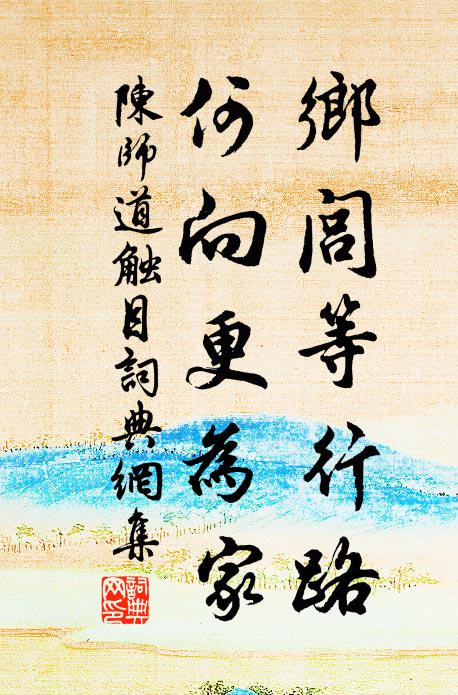 鄉閭等行路
何向更為家
陳師道觸目詞典網集